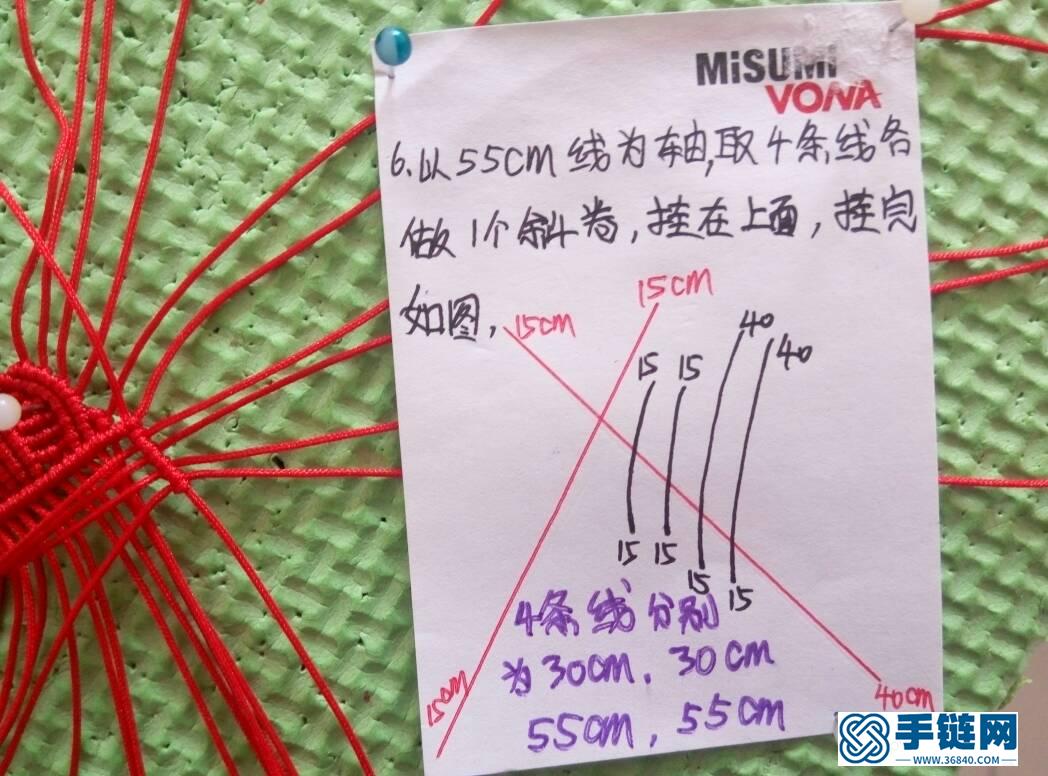 MiSUMI
VONA
6.以55CM线为轴,取4条线各
做1个斜卷,挂在上面,挂完
如图,
15cm
15cm
15 15 40 40
15 15 15 15
15cm
40cm
4条线分别
为30cm,30cm
55cm,55cm
手链网
WWW.36840.COM